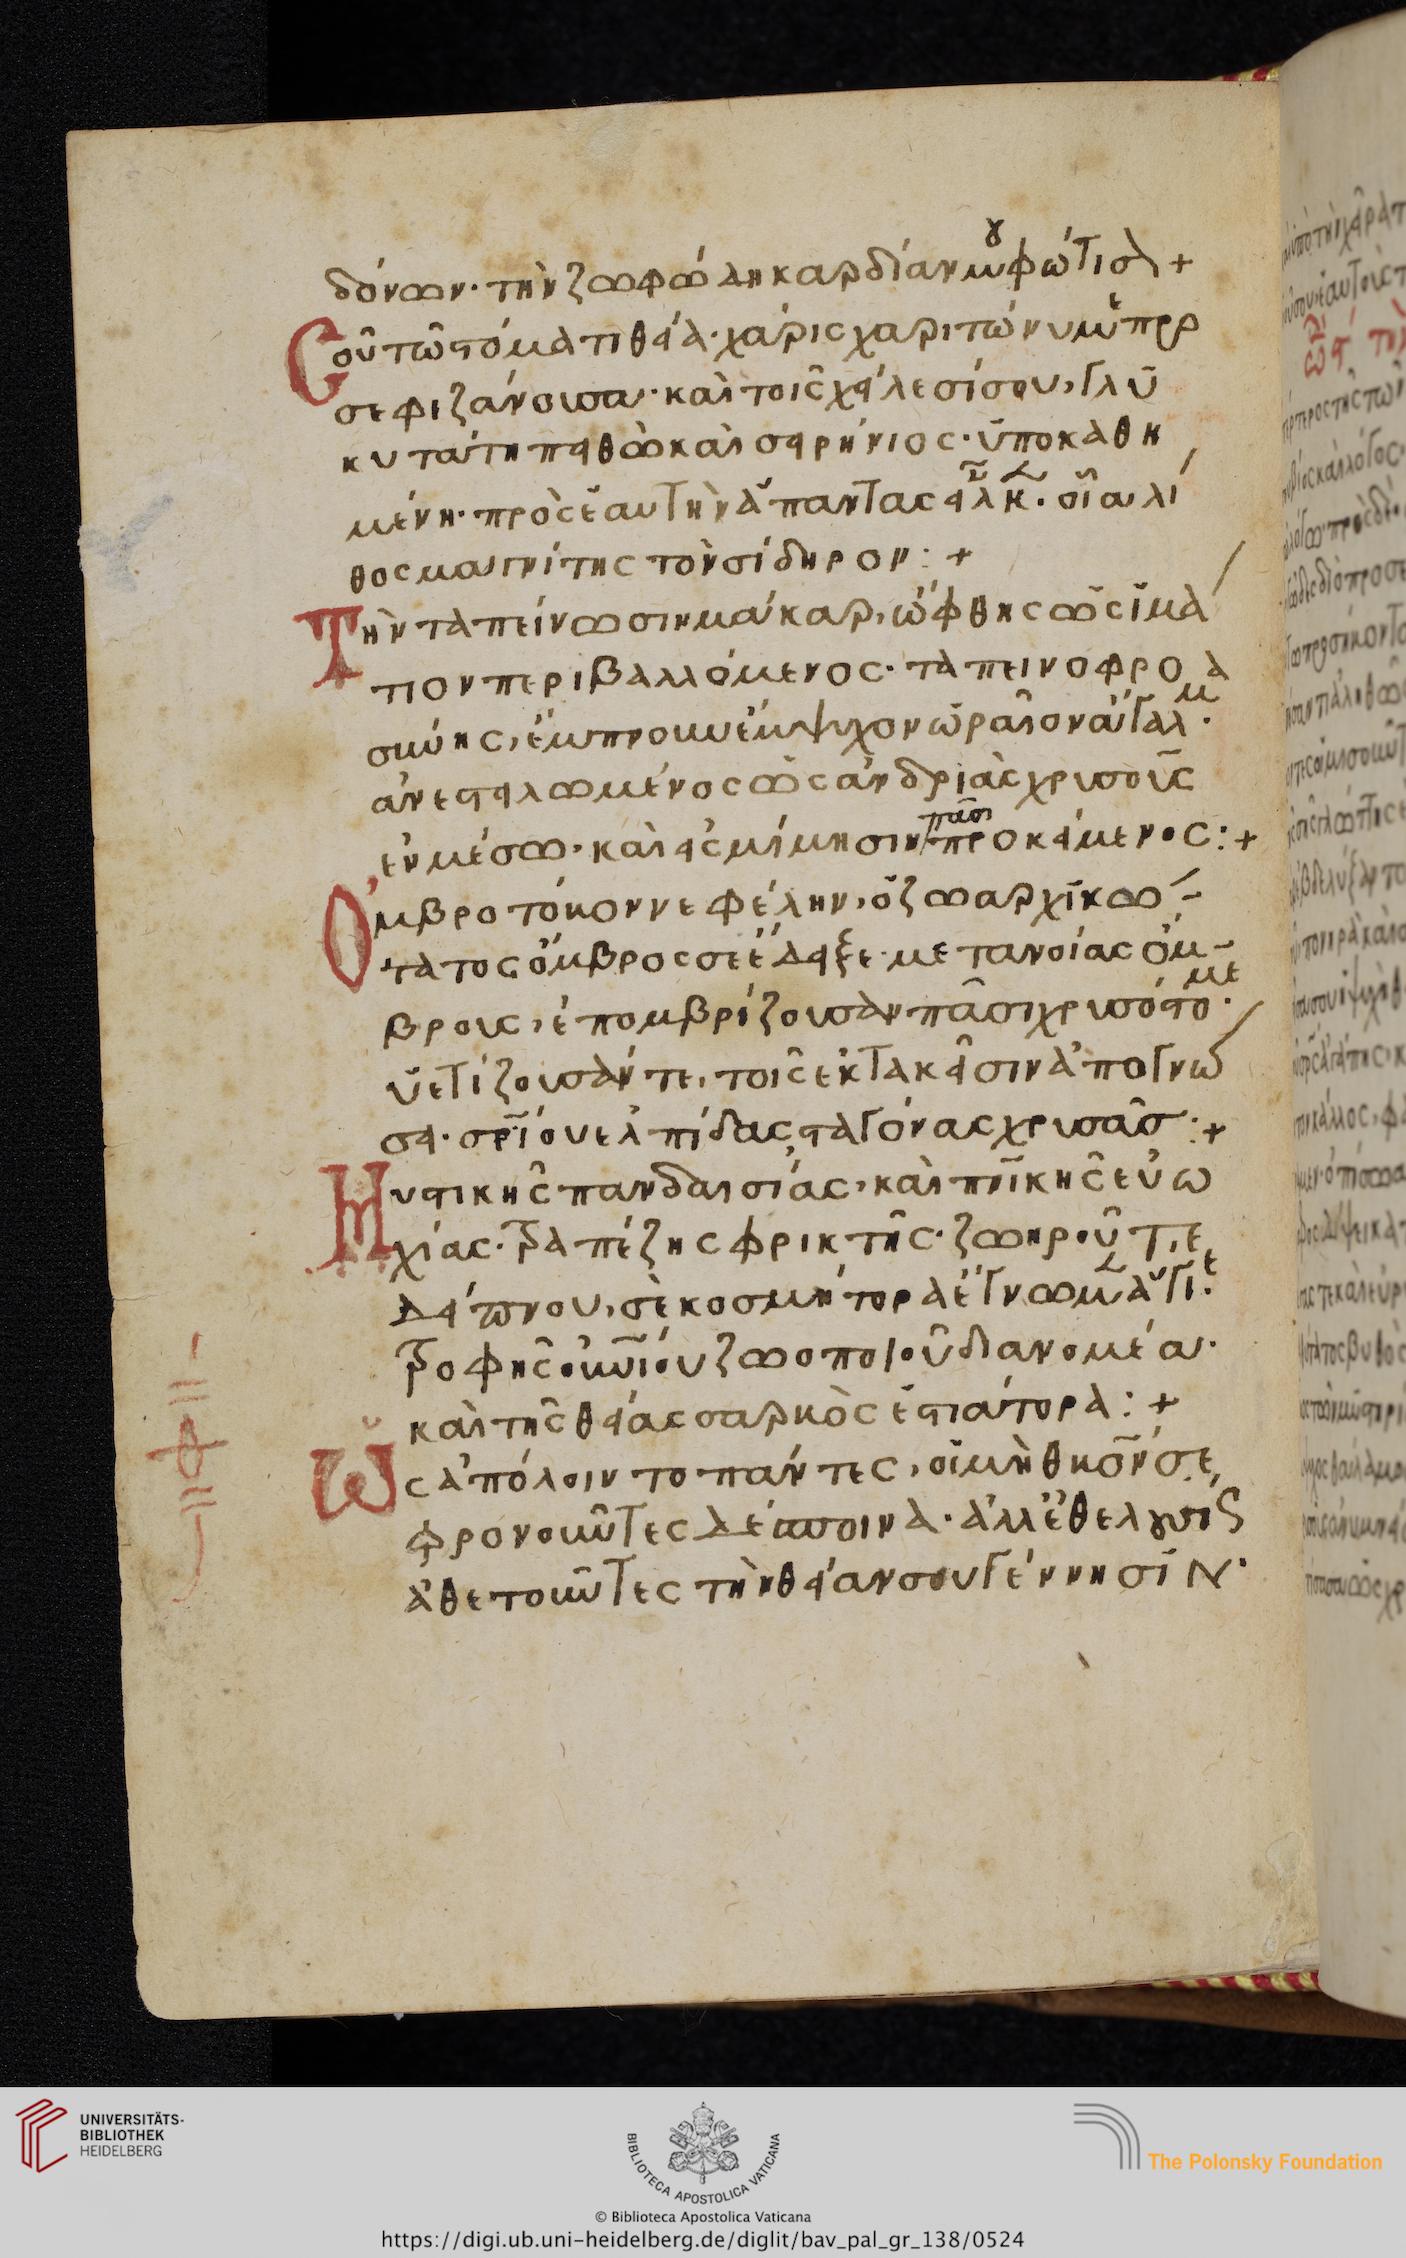 δόνων· τὴν ζωφώδη καρδίαν μου φώτισον +
Σοῦ τῷ στόματι θεία· χάρις χαρίτων
σε φιζάνουσα· καὶ τοῖς χείλεσί σου, γλυ
κυτάτη πειθὼ καὶ σειρήνιος· ὑποκαθη
μένη· πρὸς ἑαυτὴν ἅπαντας οἷα λί
θος μαγνίτης τὸν σίδηρον : +
Τὴν ταπείνωσιν μάκαρ, ὤφθης ὡς ἱμά
τιον περιβαλλόμενος· ταπεινοφρο
σύνης, ἔμπνουν ἔμψυχον ὡραῖον ἄγαλμα·
ἀνεστηλωμένος ὡς ἀνδριὰς χρυσοῦς
ἐν μέσω· καὶ εἰς μίμησιν πᾶσι προκείμενος : +
Ὀμβροτόκον νεφέλην, ὁ ζωαρχικώ
τατος ὄμβρος σε ἔδειξε· μετανοίας ὄμ-
βροις, ἐπομβρίζουσαν πᾶσι χρυσόστομε·
ὑετίζουσάν τε, τοῖς ἐκτακεῖσιν ἀπογνώ
σει· σρίου ἐλπίδας, σταγόνας χρυσᾶς : +
Μυστικῆς πανδαισίας, καὶ πνικῆς εὐω
χίας· τραπέζης φρικτῆς· ζωηροῦ τε
δείπνου, σὲ κοσμήτορα ἔγνωμεν ἅγιε·
τροφῆς οὐνίου ζωοποιοῦ διανομέα·
καὶ τῆς θείας σαρκὸς ἑστιάτορα : +
Ὡς ἀπόλοιντο πάντες, οἱ μὴ θκον σε
φρονοῦντες δέσποινα· ἀλλ' ἐθελουσίως
ἀθετοῦντες τὴν θείαν σου γέννησιν·
UNIVERSITÄTS-
BIBLIOTHEK
HEIDELBERG
BIBLIOTECA APOSTOLICA VATICANA
The Polonsky Foundation
© Biblioteca Apostolica Vaticana
https://digi.ub.uni-heidelberg.de/diglit/bav_pal_gr_138/0524